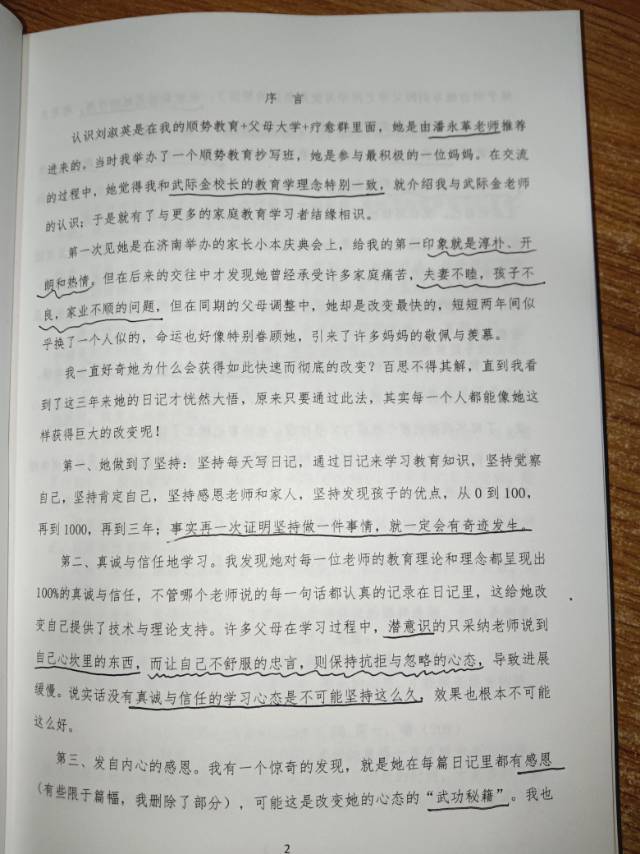 序 言
认识刘淑英是在我的顺势教育+父母大学+疗愈群里面，她是由潘永革老师推荐
进来的。当时我举办了一个顺势教育抄写班，她是参与最积极的一位妈妈。在交流
的过程中，她觉得我和武际金校长的教育学理念特别一致，就介绍我与武际金老师
的认识；于是就有了与更多的家庭教育学习者结缘相识。
第一次见她是在济南举办的家长小本庆典会上，给我的第一印象就是淳朴、开
朗和热情，但在后来的交往中才发现她曾经承受许多家庭痛苦，夫妻不睦，孩子不
良，家业不顺的问题，但在同期的父母调整中，她却是改变最快的，短短两年间似
乎换了一个人似的，命运也好像特别眷顾她，引来了许多妈妈的敬佩与羡慕。
我一直好奇她为什么会获得如此快速而彻底的改变？百思不得其解，直到我看
到了这三年来她的日记才恍然大悟，原来只要通过此法，其实每一个人都能像她这
样获得巨大的改变呢！
第一、她做到了坚持：坚持每天写日记，通过日记来学习教育知识，坚持觉察
自己，坚持肯定自己，坚持感恩老师和家人，坚持发现孩子的优点，从 0 到 100，
再到 1000，再到三年；事实再一次证明坚持做一件事情，就一定会有奇迹发生。
第二、真诚与信任地学习。我发现她对每一位老师的教育理论和理念都呈现出
100%的真诚与信任，不管哪个老师说的每一句话都认真的记录在日记里，这给她改
变自己提供了技术与理论支持。许多父母在学习过程中，潜意识的只采纳老师说到
自己心坎里的东西，而让自己不舒服的忠言，则保持抗拒与忽略的心态，导致进展
缓慢。说实话没有真诚与信任的学习心态是不可能坚持这么久，效果也根本不可能
这么好。
第三、发自内心的感恩。我有一个惊奇的发现，就是她在每篇日记里都有感恩
（有些限于篇幅，我删除了部分），可能这是改变她的心态的“武功秘籍”。我也
2